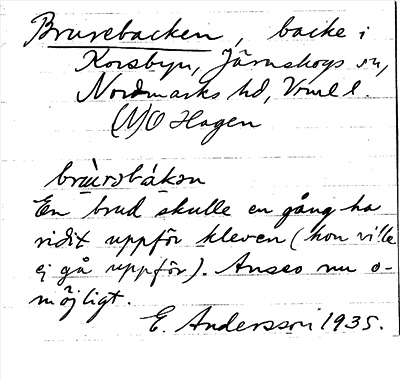 Brurebacken, backe i
Korsbyn, Järnskogs sn,
Nordmarks hd, Vrml l.
(N)O Hagen
brùrəbákən
En brud skulle en gång ha
ridit uppför kleven (hon ville
ej gå uppför). Anses nu o-
möjligt.
E. Andersson 1935.